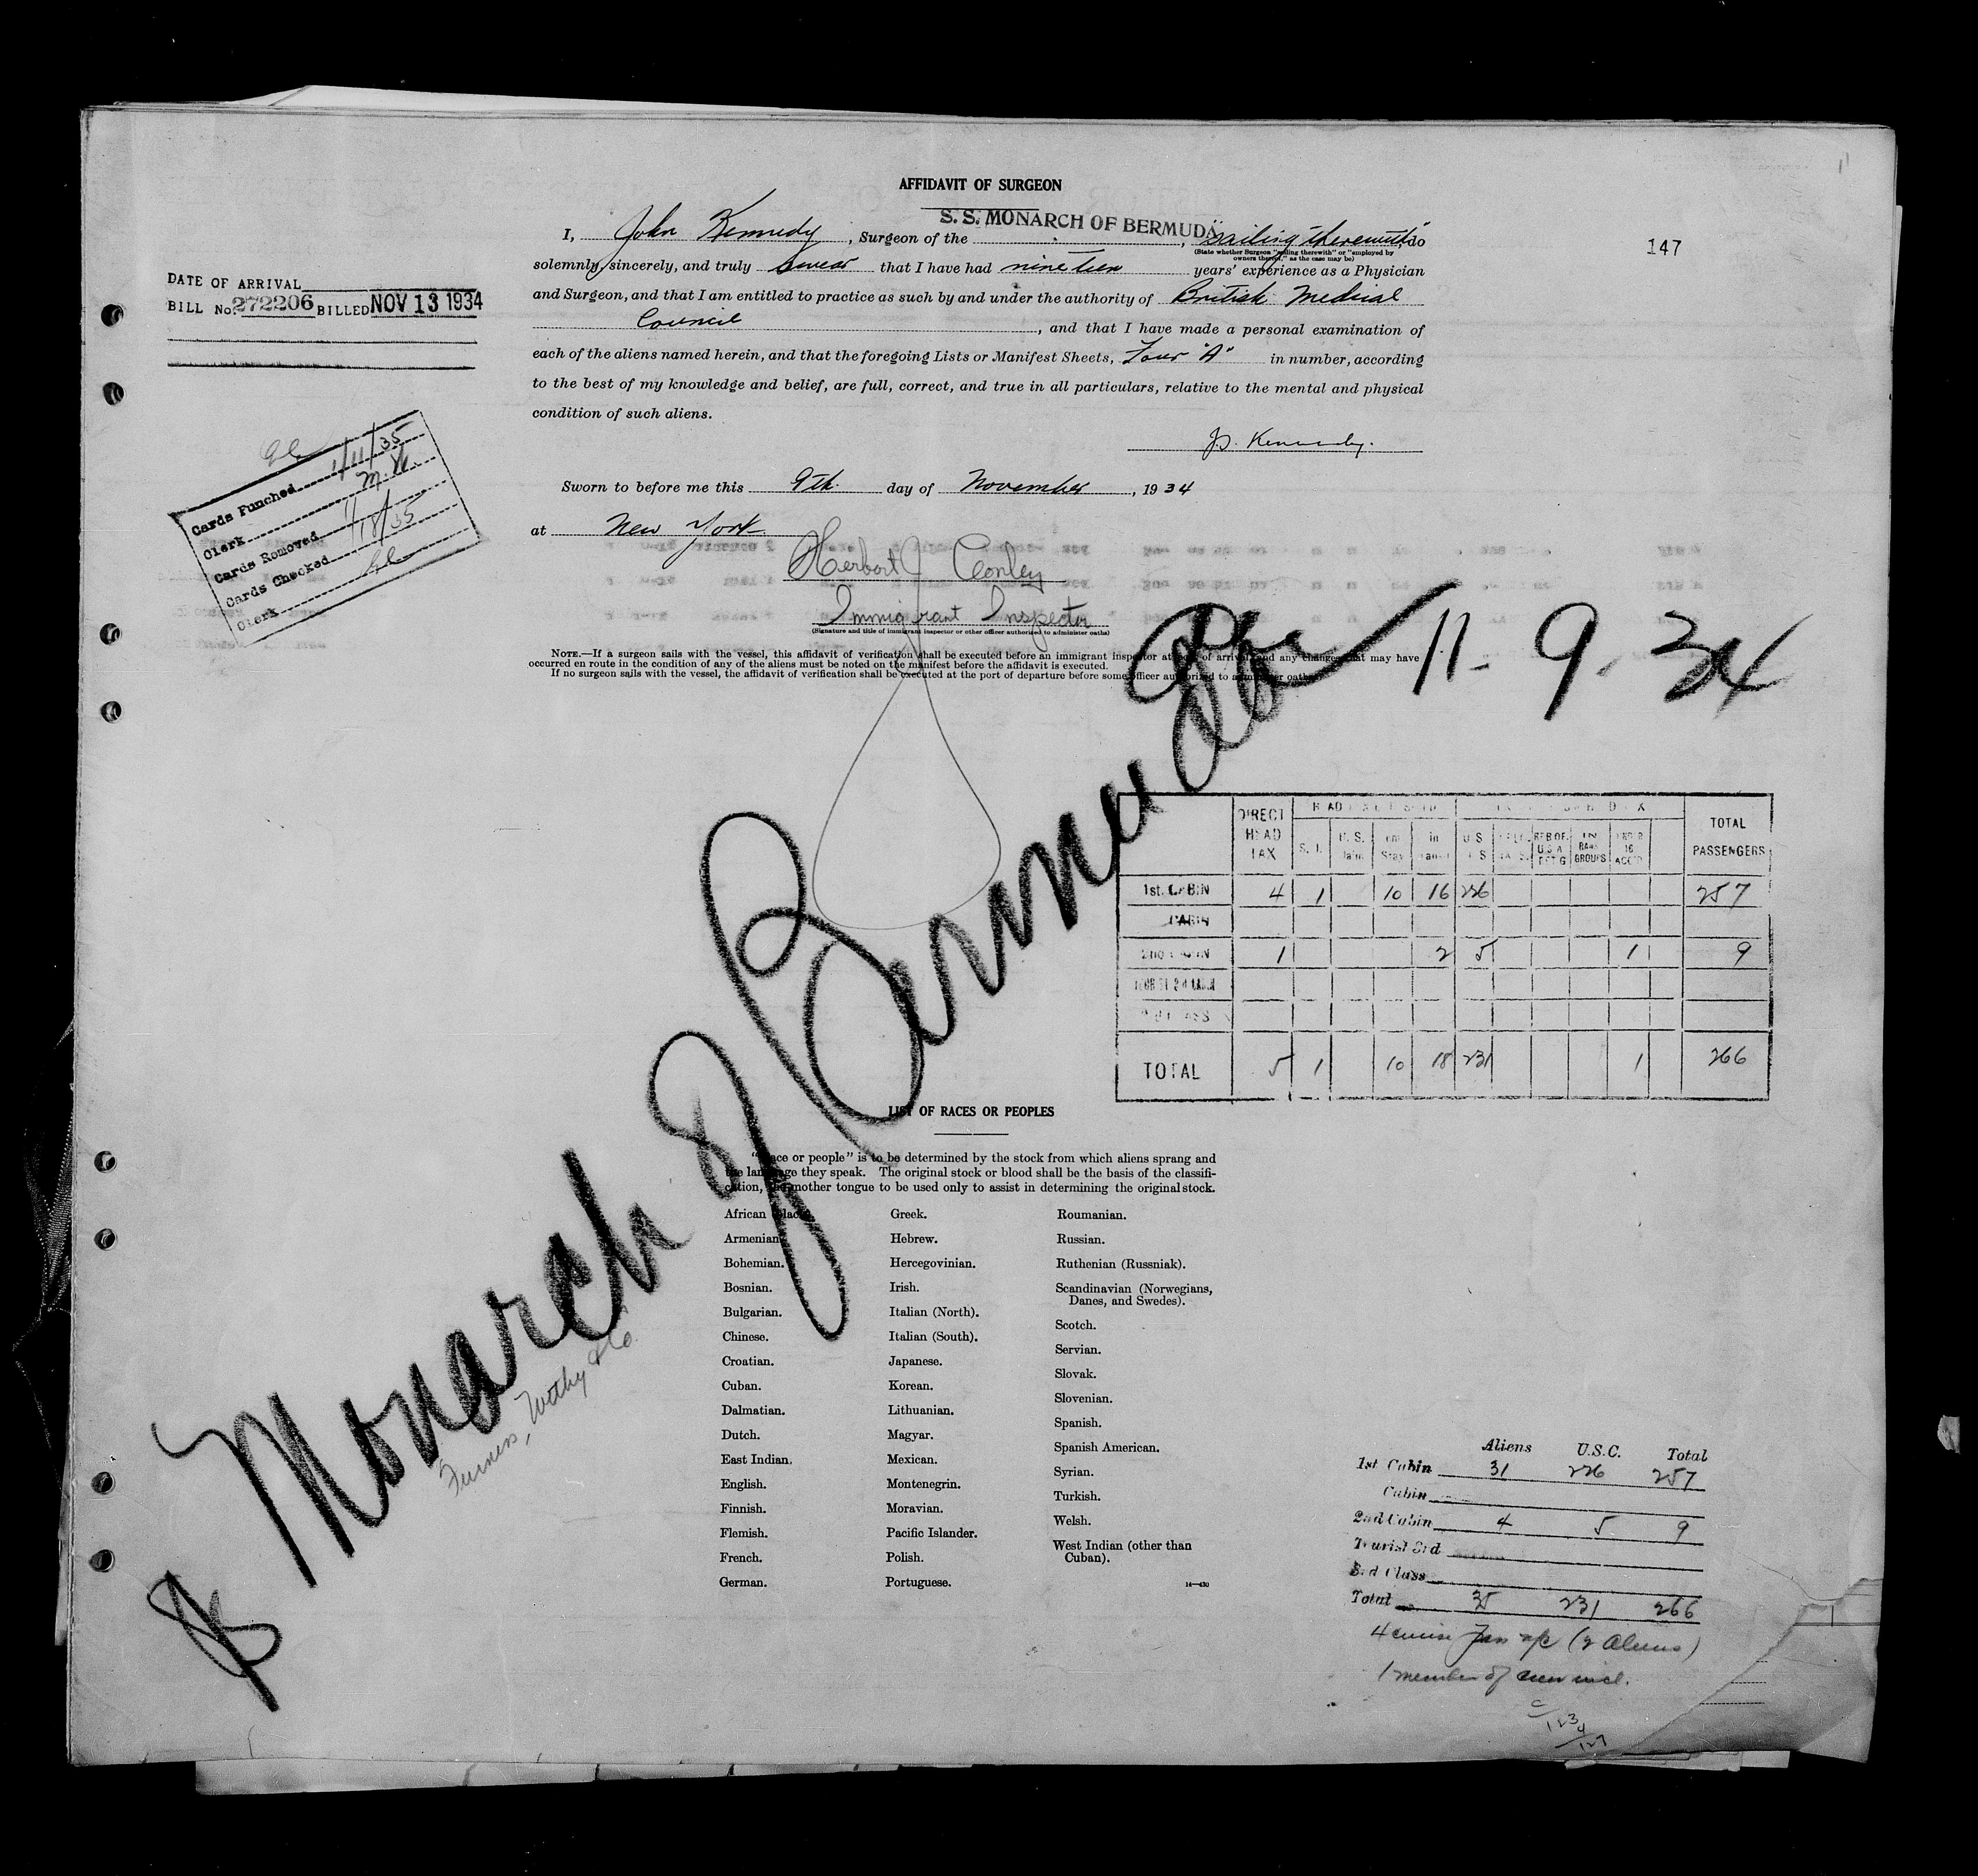 AFFIDAVIT OF SURGEON
S. S. MONARCH OF BERMUDA
I, John Kennedy, Surgeon of the , "sailing therewith" do
(State whether Surgeon "sailing therewith" or "employed by owners thereof," as the case may be)
solemnly, sincerely, and truly swear that I have had nineteen years' experience as a Physician
and Surgeon, and that I am entitled to practice as such by and under the authority of British Medical
Council, and that I have made a personal examination of
each of the aliens named herein, and that the foregoing Lists or Manifest Sheets, Four "A" in number, according
to the best of my knowledge and belief, are full, correct, and true in all particulars, relative to the mental and physical
condition of such aliens.
J. Kennedy.
Sworn to before me this 9th. day of November, 1934
at New York
Herbert J Conley
Immigrant Inspector
(Signature and title of immigrant inspector or other officer authorized to administer oaths)
NOTE.—If a surgeon sails with the vessel, this affidavit of verification shall be executed before an immigrant inspector at port of arrival and any changes that may have
occurred en route in the condition of any of the aliens must be noted on the manifest before the affidavit is executed.
If no surgeon sails with the vessel, the affidavit of verification shall be executed at the port of departure before some officer authorized to administer oaths.
147
DATE OF ARRIVAL
BILL No. 272206 BILLED NOV 13 1934
Cards Punched 1/11/35
Clerk M.
Cards Removed
Cards Checked 1/18/35
Clerk
11-9-34
SS Monarch of Bermuda
Furness, Withy & Co.
DIRECT HEAD TAX S. I. U. S. in U S IN RAAS GROUPS TOTAL PASSENGERS
1st. CABIN 4 1 10 16 226 257
CABIN
2nd CABIN 1 2 5 1 9
TOTAL 5 1 10 18 231 1 266
LIST OF RACES OR PEOPLES
"Race or people" is to be determined by the stock from which aliens sprang and
the language they speak. The original stock or blood shall be the basis of the classifi-
cation, the mother tongue to be used only to assist in determining the original stock.
African (black).
Armenian.
Bohemian.
Bosnian.
Bulgarian.
Chinese.
Croatian.
Cuban.
Dalmatian.
Dutch.
East Indian.
English.
Finnish.
Flemish.
French.
German.
Greek.
Hebrew.
Hercegovinian.
Irish.
Italian (North).
Italian (South).
Japanese.
Korean.
Lithuanian.
Magyar.
Mexican.
Montenegrin.
Moravian.
Pacific Islander.
Polish.
Portuguese.
Roumanian.
Russian.
Ruthenian (Russniak).
Scandinavian (Norwegians,
Danes, and Swedes).
Scotch.
Servian.
Slovak.
Slovenian.
Spanish.
Spanish American.
Syrian.
Turkish.
Welsh.
West Indian (other than
Cuban).
14—430
Aliens U.S.C. Total
1st Cabin 31 226 257
Cabin
2nd Cabin 4 5 9
Tourist 3rd
3rd Class
Total 35 231 266
4 cruise (2 Aliens)
1 member of crew incl.